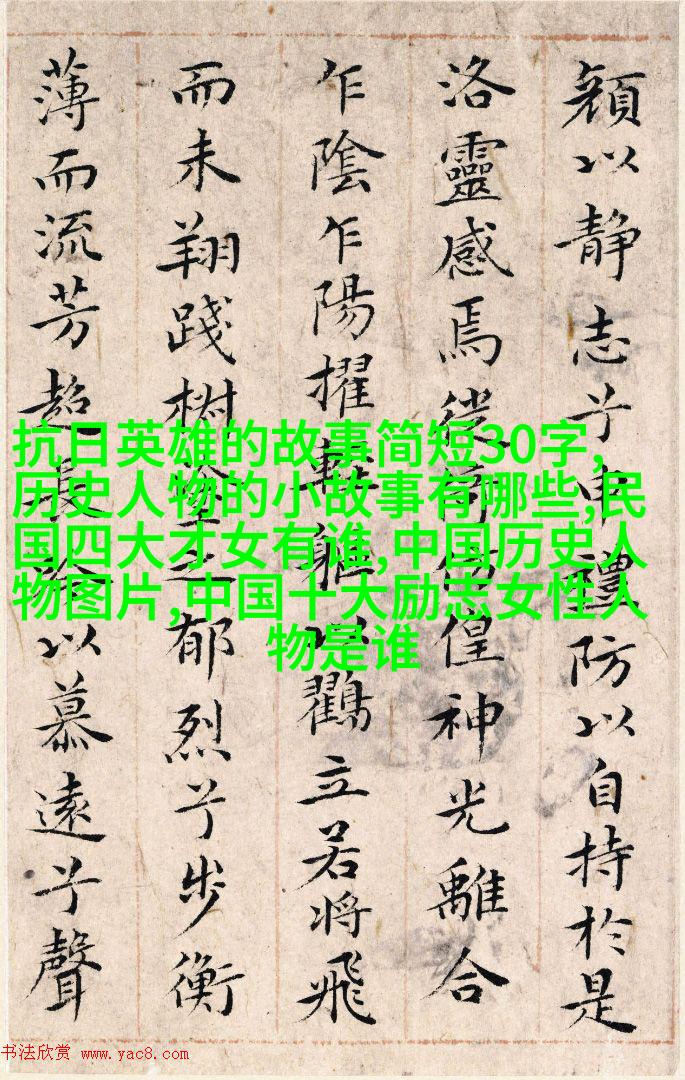 顔以静志兮申禮防以自持於是
洛靈感焉徙倚傍偟神光離合
乍陰乍陽擢輕軀以鸖立若將飛
而未翔踐椒塗之郁烈兮步衡
薄而流芳超長吟以慕遠兮聲
抗日英雄的故事简短30字,
历史人物的小故事有哪些,民
国四大才女有谁,中国历史人
物图片,中国十大励志女性人
物是谁
书法欣赏 www.yac8.com